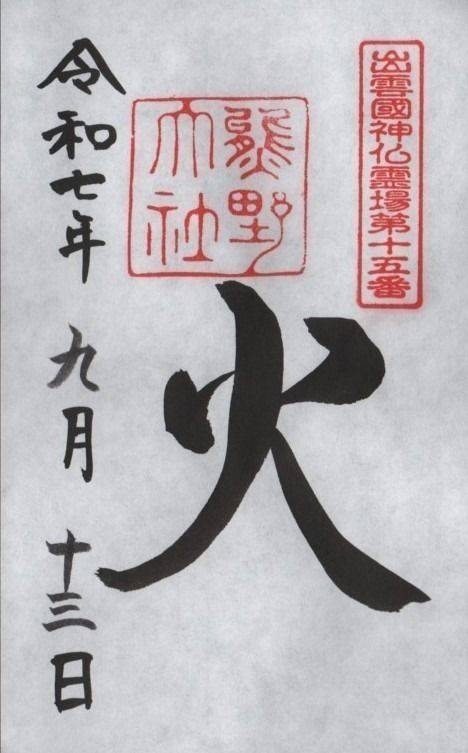 出雲國神仏霊場第十五番
熊野
大社
火
令和七年 九月 十三日